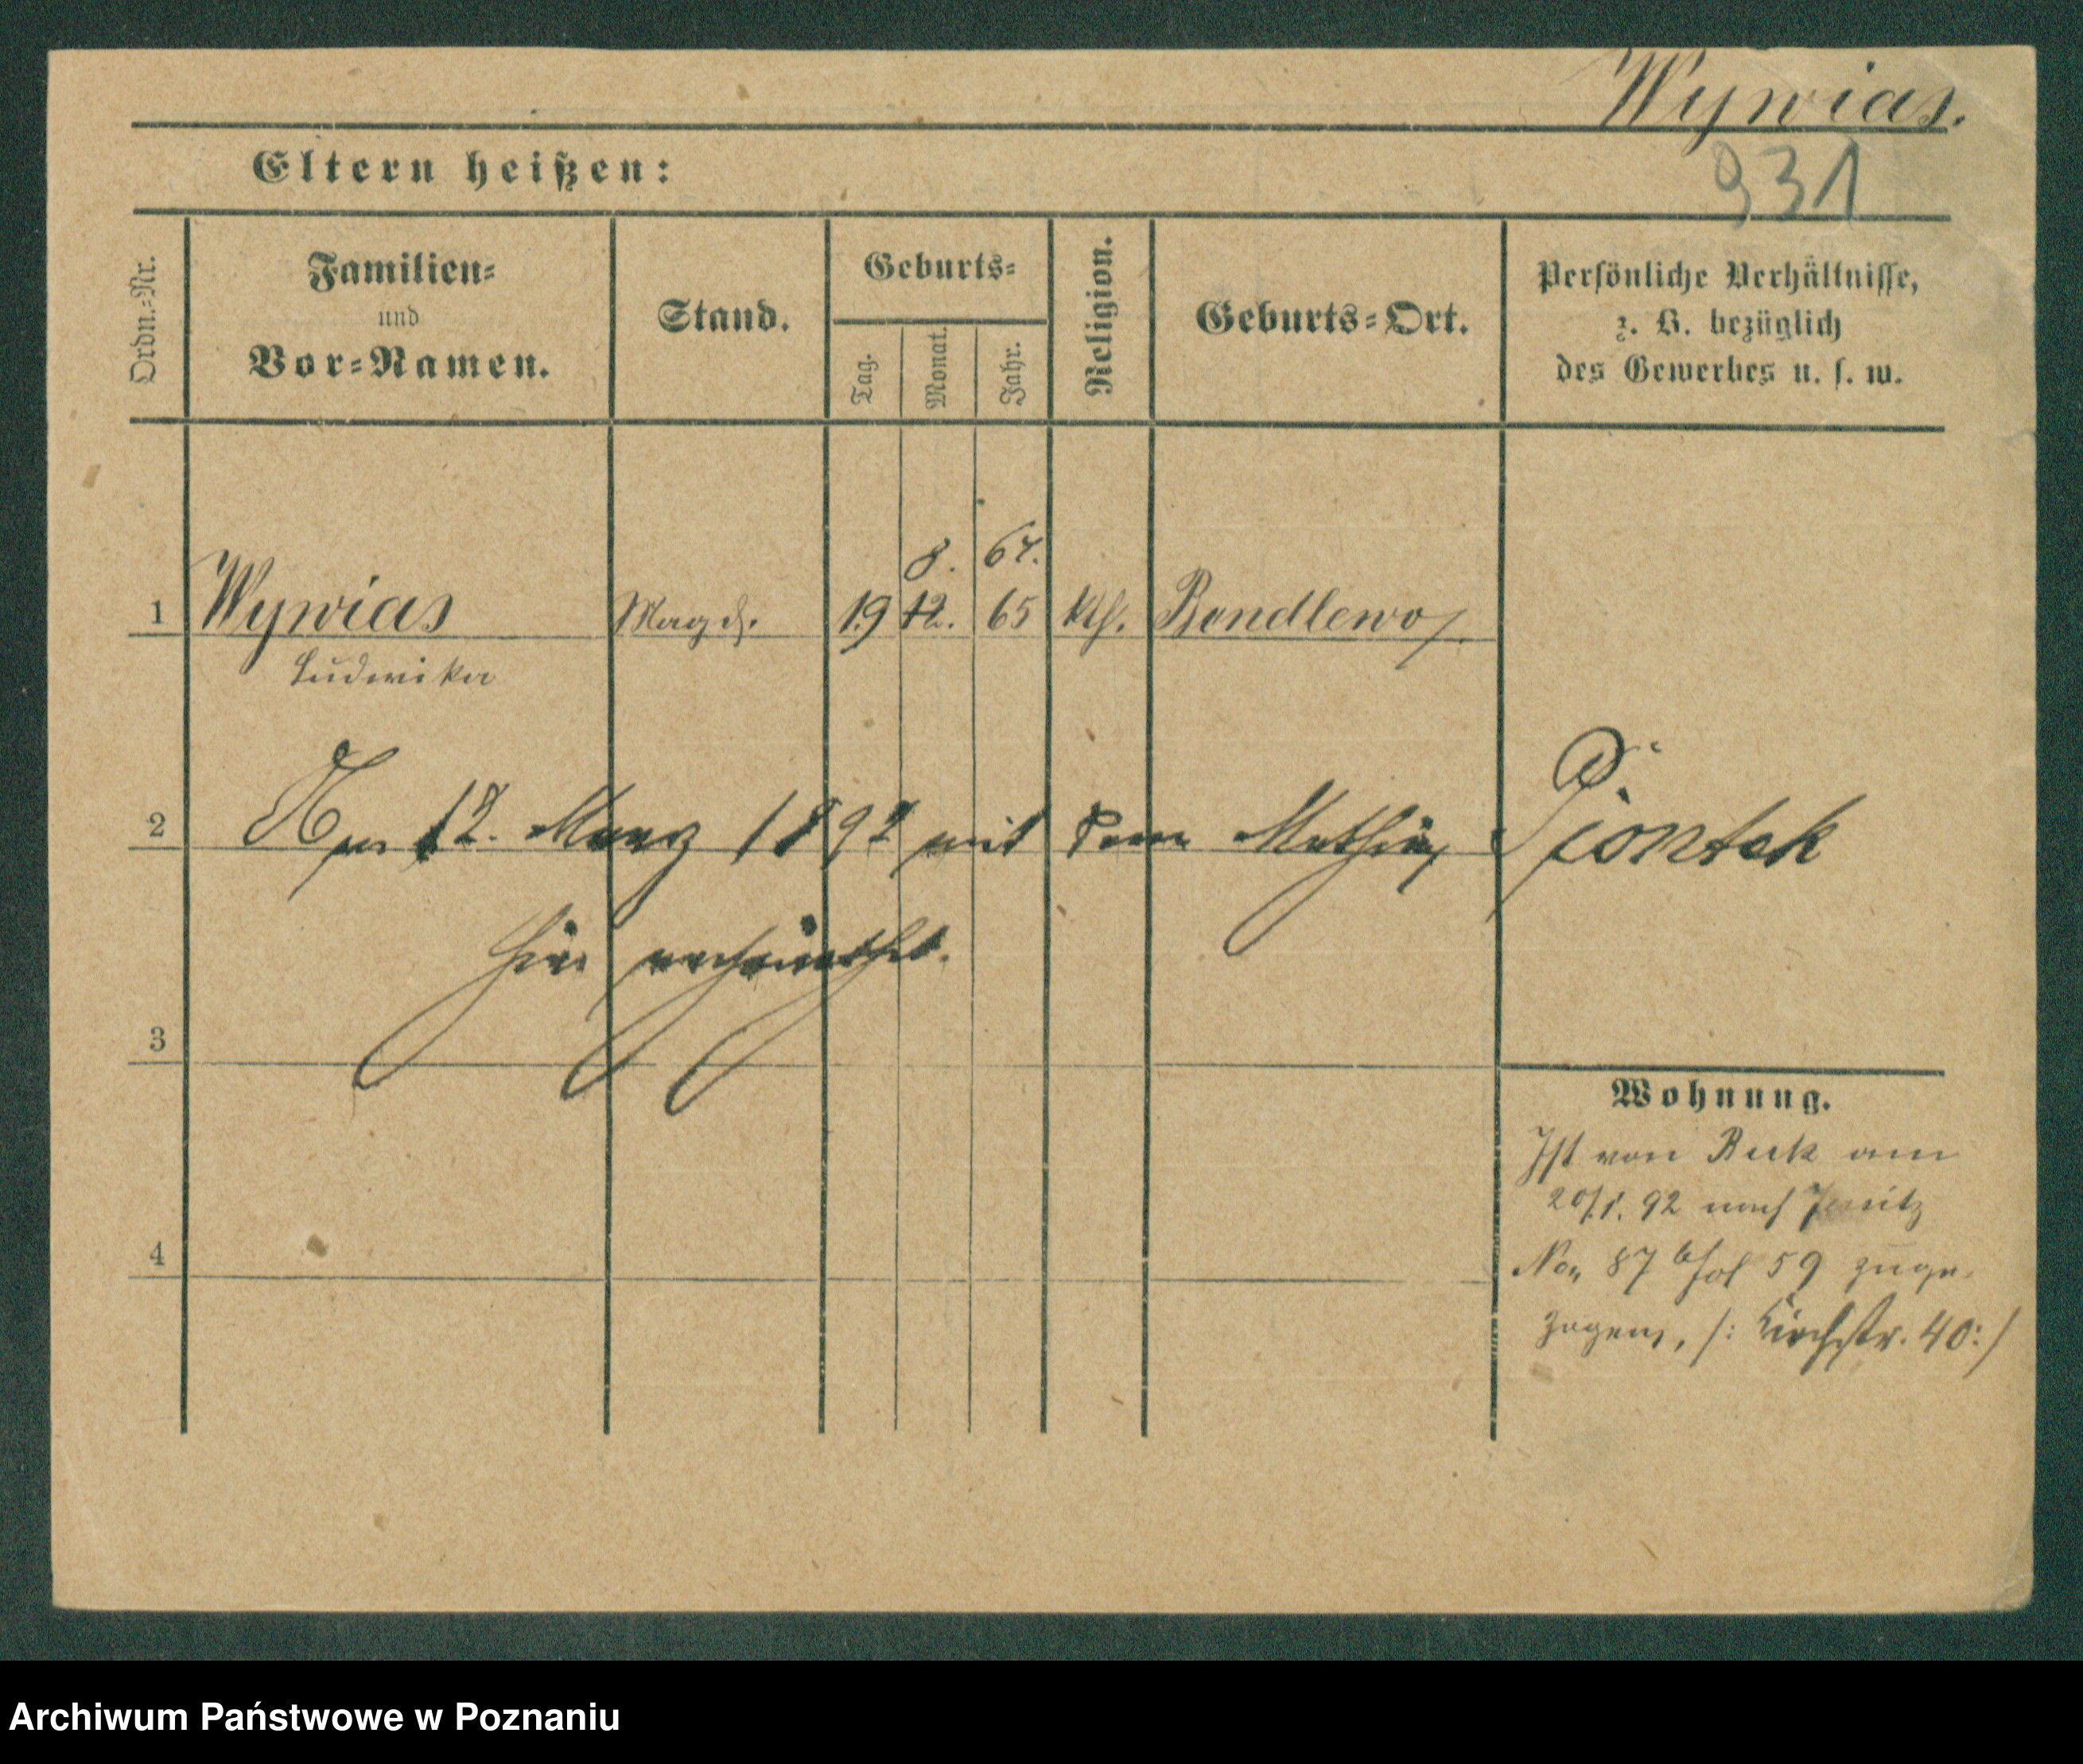 Wywias.
931
Eltern heißen:
Ordn.=Nr.
Familien=
und
Vor=Namen.
Stand.
Geburts=
Tag.
Monat.
Jahr.
Religion.
Geburts=Ort.
Persönliche Verhältnisse,
z. B. bezüglich
des Gewerbes u. s. w.
8. 67.
1 Wywias Magd. 19 12. 65 kth. Bendlewo
Ludwika
2 Am 12. Maerz 1892 mit dem Mathias Piontek
hier verheirathet.
3
Wohnung.
Ist von Buk am
20/1. 92 nach Jersitz
No. 87 b fol 59 zuge-
zogen, /: Kirchstr. 40 :/
4
Archiwum Państwowe w Poznaniu